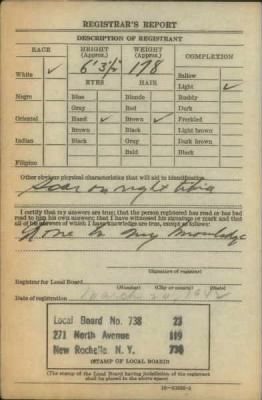 REGISTRAR'S REPORT
DESCRIPTION OF REGISTRANT
RACE HEIGHT (Approx.) WEIGHT (Approx.) COMPLEXION
White ✓ 6' 3½" 178 Sallow
EYES HAIR Light ✓
Negro Blue Blonde Ruddy
Gray Red Dark
Oriental Hazel ✓ Brown ✓ Freckled
Brown Black Light brown
Indian Black Gray Dark brown
Bald Black
Filipino
Other obvious physical characteristics that will aid in identification
Scar on right tibia
I certify that my answers are true; that the person registered has read or has had
read to him his own answers; that I have witnessed his signature or mark and that
all of his answers of which I have knowledge are true, except as follows:
None to my knowledge
(Signature of registrar)
Registrar for Local Board
(Number) (City or county) (State)
Date of registration 1942
Local Board No. 738 23
271 North Avenue 119
New Rochelle N. Y. 738
(STAMP OF LOCAL BOARD)
(The stamp of the Local Board having jurisdiction of the registrant
shall be placed in the above space)